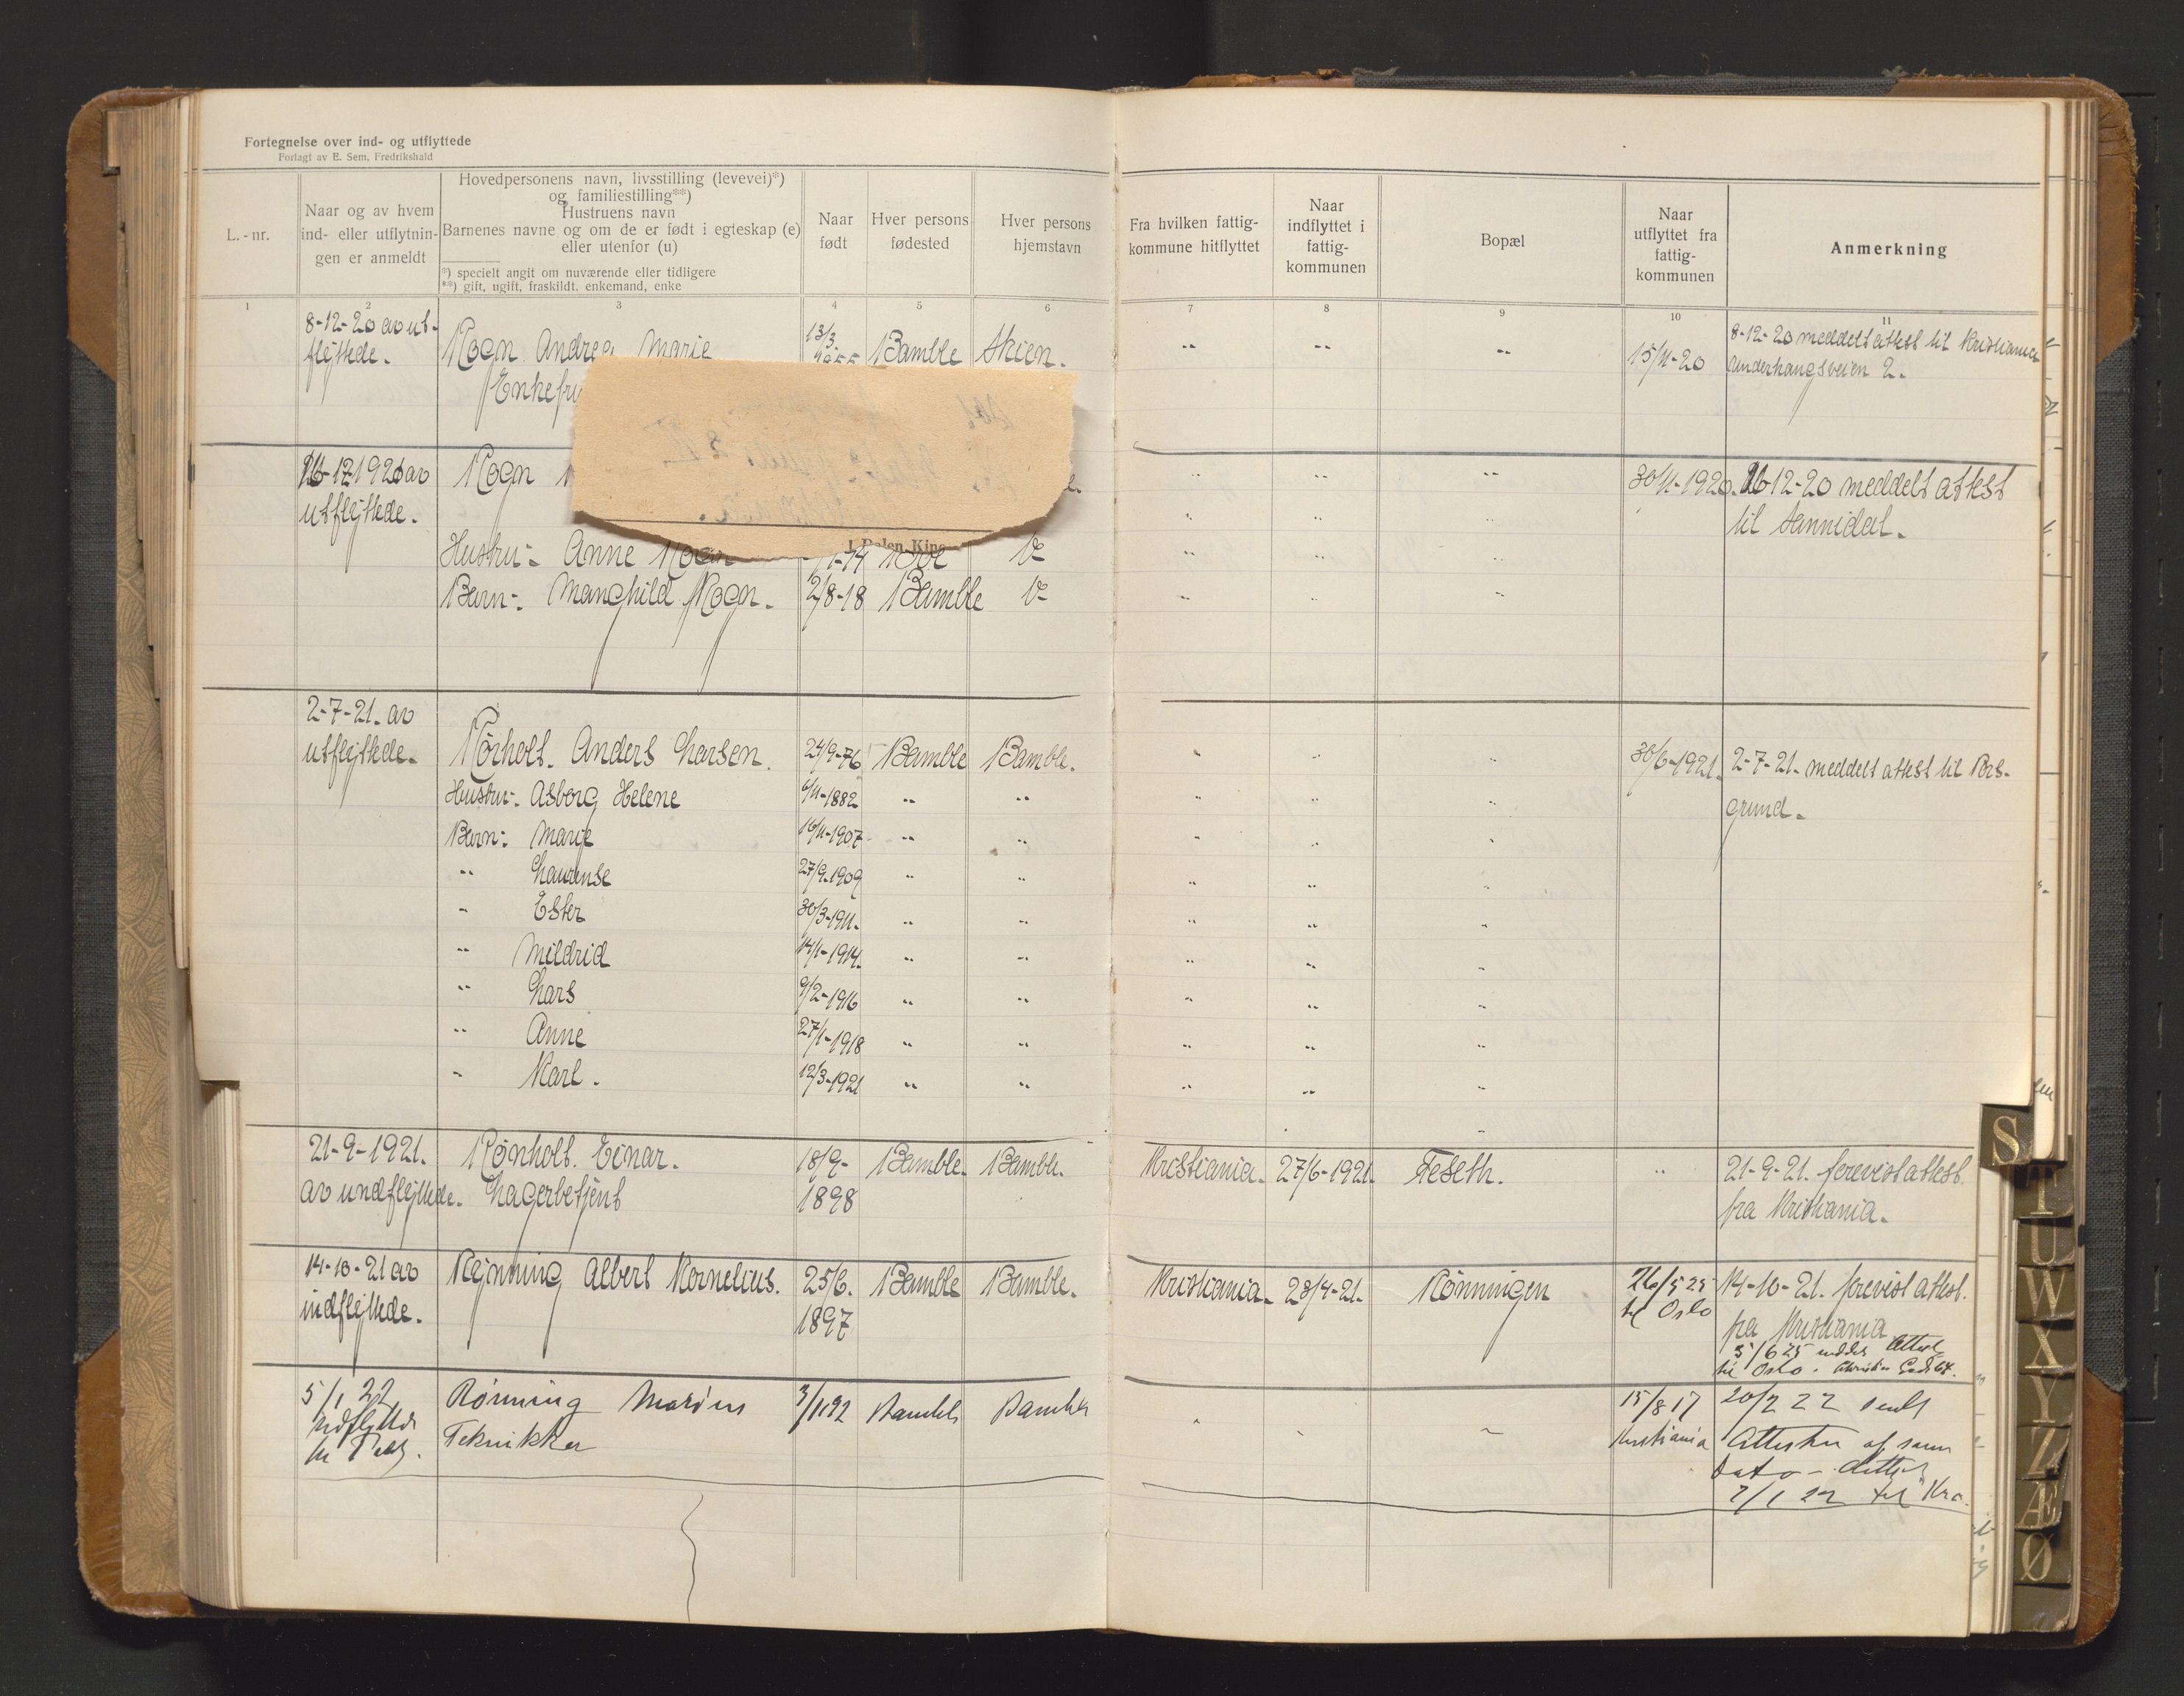 Fortegnelse over ind- og utflyttede
Forlagt av E. Sem, Fredrikshald
L.-nr.
Naar og av hvem
ind- eller utflytnin-
gen er anmeldt
Hovedpersonens navn, livsstilling (levevei)*)
og familiestilling**)
Hustruens navn
Barnenes navne og om de er født i egteskap (e)
eller utenfor (u)
*) specielt angit om nuværende eller tidligere
**) gift, ugift, fraskildt. enkemand, enke
Naar
født
Hver persons
fødested
Hver persons
hjemstavn
Fra hvilken fattig-
kommune hitflyttet
Naar
indflyttet i
fattig-
kommunen
Bopæl
Naar
utflyttet fra
fattig-
kommunen
Anmerkning
1 2 3 4 5 6 7 8 9 10 11
8-12-20 av ut- Rogn Andrea Marie 13/3 Bamble Skien. " " " 15/11-20 8-12-20 meddelt attest til Kristiania
flyttede. Enkefru underhaugsveien 2.
16-12 1920 av Rogn " " " 30/11-1920. 16-12-20 meddelt attest
utflyttede. til Sannidal.
J. Dalen, Kins
Hustru:- Anne Rogn
Barn:- Manghild Rogn. 2/8-18 Bamble
2-7-21. av
utflyttede. Rörholt. Anders Larsen. 24/9-76 Bamble Bamble. " " " 30/6-1921. 2-7-21. meddelt attest til Pors-
Hustru:- Asborg Helene 6/11-1882 " " " " " grund.
Barn:- Marie 16/11-1907 " " " " "
" Laurense 27/9-1909 " " " " "
" Ester 30/3-1911. " " " " "
" Mildrid 14/1-1914. " " " " "
" Lars 9/2-1916 " " " " "
" Anne 27/1-1918 " " " " "
" Karl. 12/3-1921 " " " " "
21-9-1921. Rønholt. Einar. 18/9- Bamble. Bamble. Kristiania. 27/6-1921. Feseth. " 21-9-21. forevist attest.
av indflyttede. Lagerbetjent 1898 fra Kristiania.
14-10-21 av Rynning Albert Kornelius. 25/6. Bamble Bamble. Kristiania. 28/4-21. Rönningen 26/5 25 14-10-21. forevist attest.
indflyttede. 1897 til Oslo fra Kristiania
5/6 25 meddelt Attest
til Oslo.
5/1 22 Rönning Marius 3/1 92 Bamble Bamble " " " 15/8 17 20/2 22 sendt
Teknikker Kristiania Attesten af samme
Dato - Attest
7/1 22 til Kra.
S
T
U
W
X
Y
Z
Æ
Ø